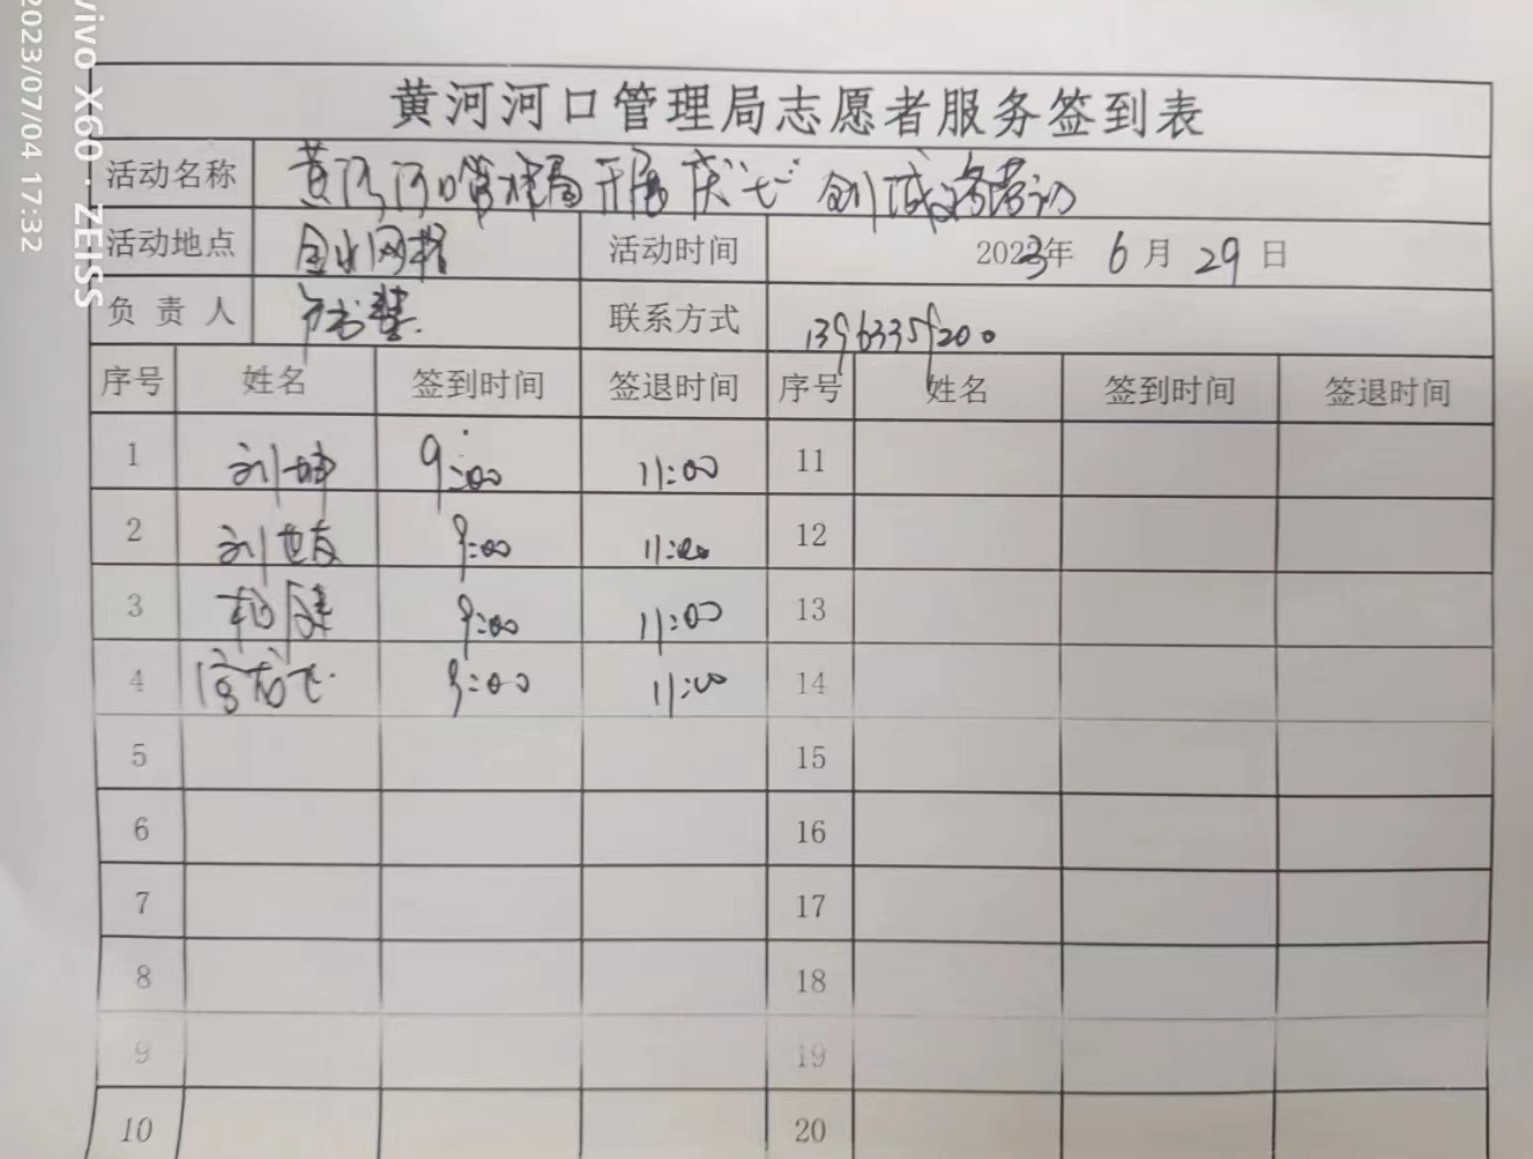 2023/07/04 17:32
vivo X60 · ZEISS
黄河河口管理局志愿者服务签到表
活动名称 黄河河口管理局开展庆"七一"
活动地点 活动时间 2023年 6月 29日
负责人 联系方式 13963359200
序号 姓名 签到时间 签退时间 序号 姓名 签到时间 签退时间
1 刘坤 9:00 11:00 11
2 刘世友 9:00 11:00 12
3 9:00 11:00 13
4 9:00 11:00 14
5 15
6 16
7 17
8 18
9 19
10 20